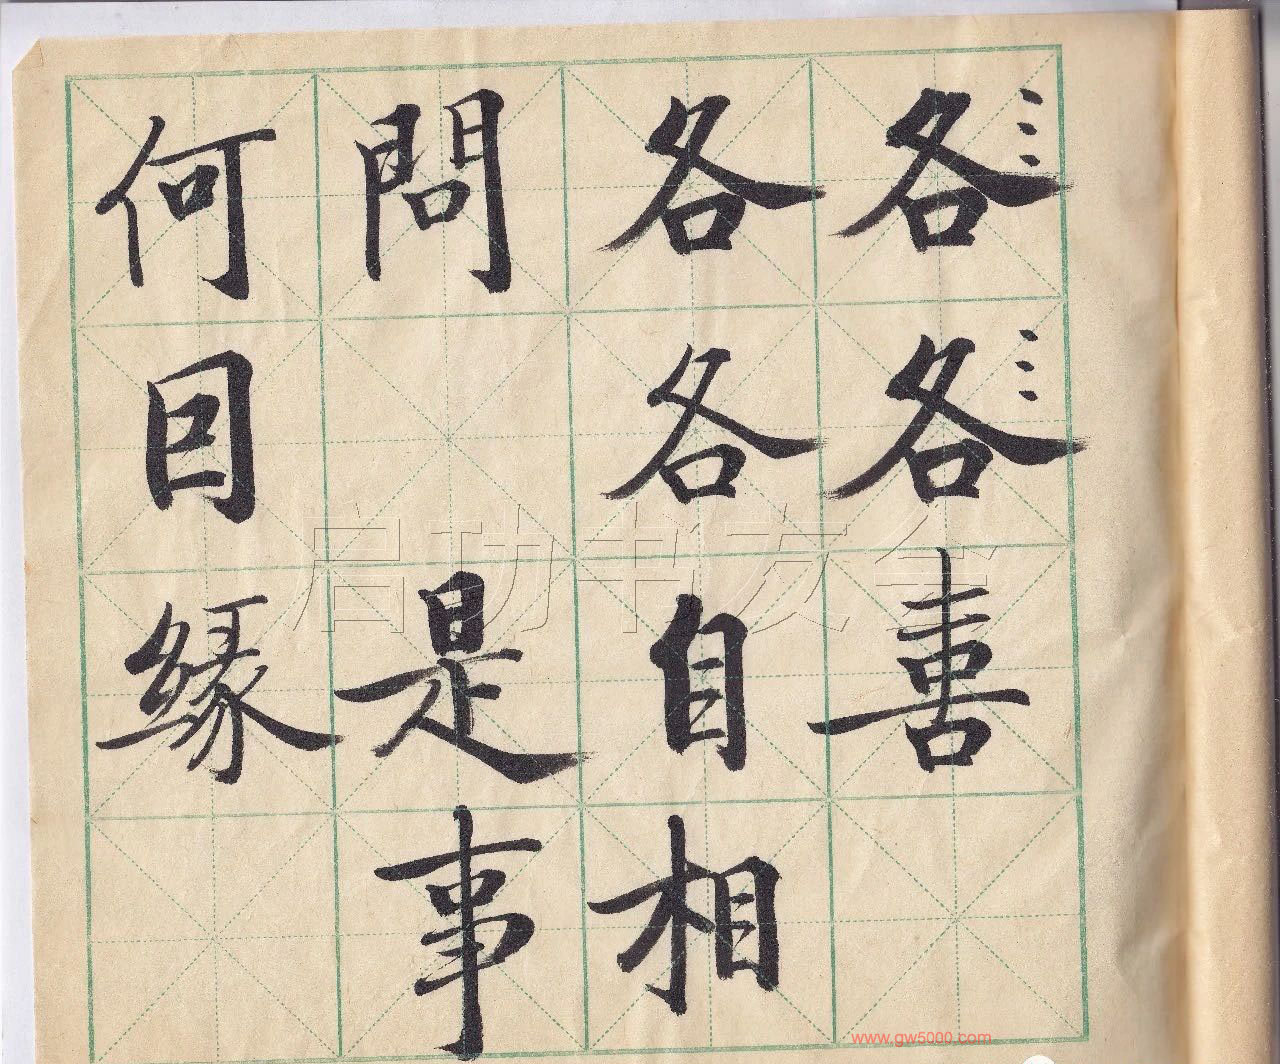 各各喜
各各自相
問 是事
何因緣
启功书友会
www.gw5000.com